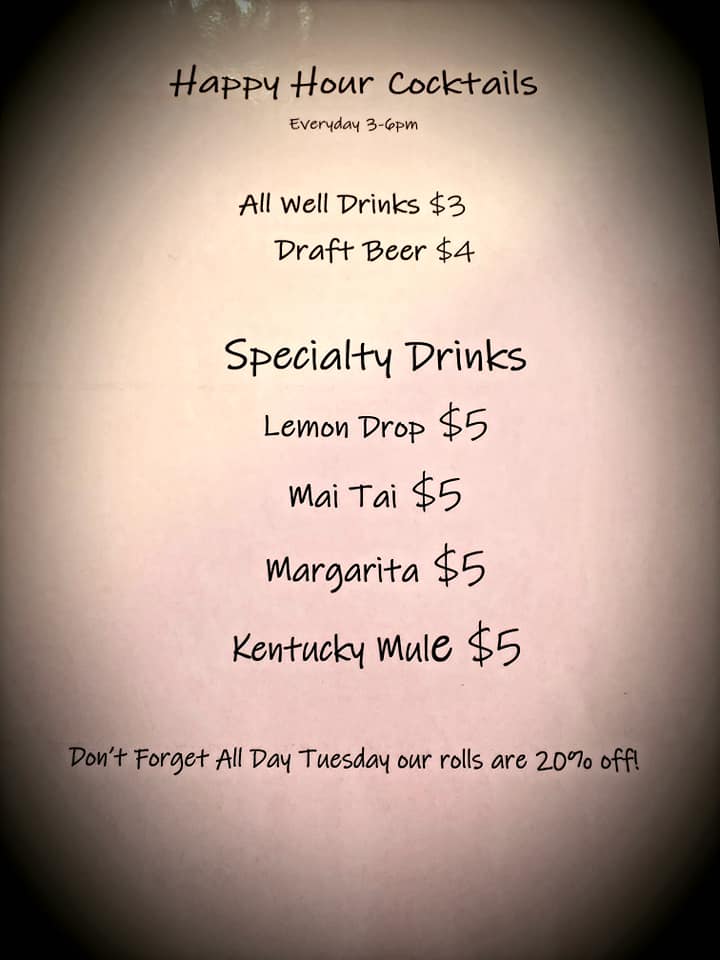 Happy Hour Cocktails
Everyday 3-6pm
All Well Drinks $3
Draft Beer $4
Specialty Drinks
Lemon Drop $5
Mai Tai $5
Margarita $5
Kentucky Mule $5
Don't Forget All Day Tuesday our rolls are 20% off!